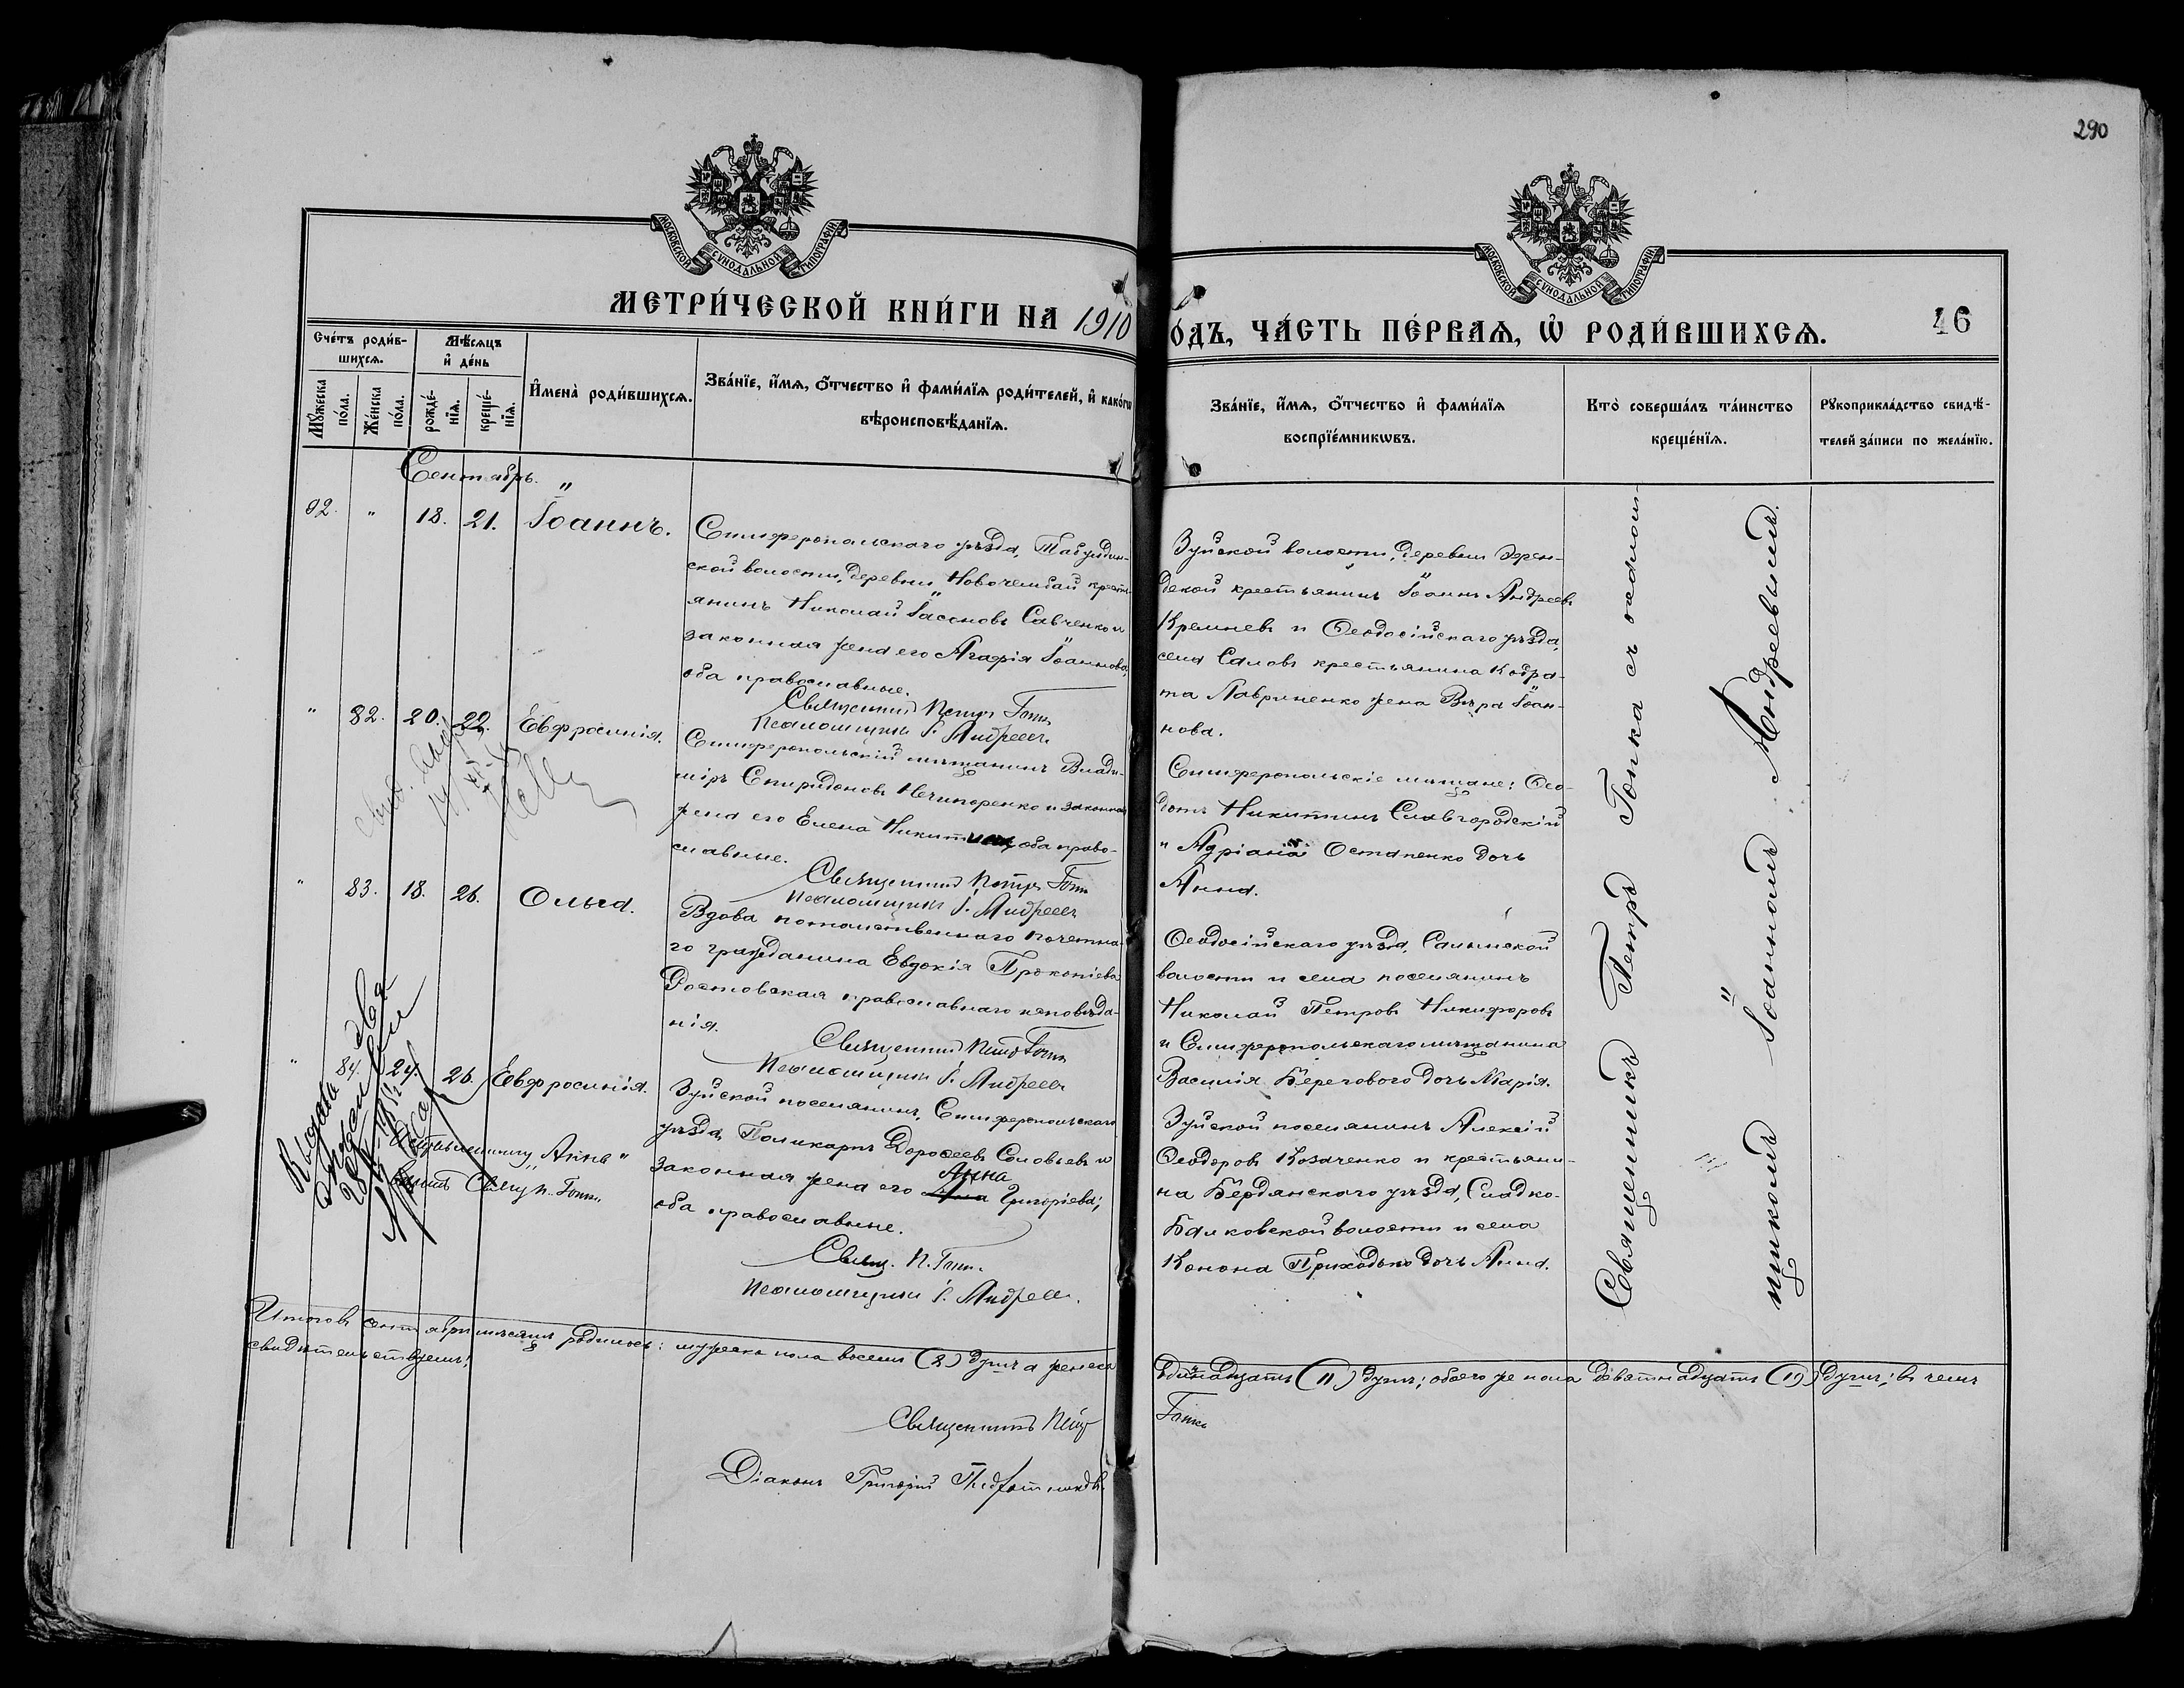 290
МОСКОВСКОЙ СѴНОДАЛЬНОЙ ТИПОГРАФІИ
МОСКОВСКОЙ СѴНОДАЛЬНОЙ ТИПОГРАФІИ
МЕТРИ́ЧЕСКОЙ КНИ́ГИ НА 1910
О́ДЪ, ЧА́СТЬ ПЕ́РВАѦ, Ѽ РОДИ́ВШИХСѦ.
46
Сче́тъ роди́в-
шихсѧ.
Мѣ́сѧцъ
и҆ де́нь
Мꙋ́жеска
по́ла.
Же́нска
по́ла.
рожде́-
нїѧ.
креще́-
нїѧ.
И҆мена̀ роди́вшихсѧ.
Зва́нїе, и҆́мѧ, ѻ҆́тчество и҆ фами́лїѧ роди́телей, и҆ како́гѡ
вѣроисповѣ́данїѧ.
Зва́нїе, и҆́мѧ, ѻ҆́тчество и҆ фами́лїѧ
воспрїе́мникѡвъ.
Кто̀ соверша́лъ та́инство
креще́нїѧ.
Рꙋкоприкла́дство свидѣ́-
телей за́писи по жела́нїю.
Сентябрь.
92. " 18. 21. Іоаннъ.
Симферопольскаго уѣзда, Табулдин-
ской волости, деревни Новочембай кресть-
янинъ Николай Іассоновъ Савченко и
законная жена его Агафія Іоаннова,
оба православные.
Священникъ Петръ Гопка
Псаломщикъ І. Андреевъ.
Зуйской волости, деревни
крестьянинъ Іоаннъ Андреевъ
Кремневъ и Ѳеодосійскаго уѣзда,
села Саловъ крестьянина Кодра-
та Лавриненко жена Вѣра Іоан-
нова.
" 82. 20. 22. Евфросинія.
Симферопольскій мѣщанинъ Влади-
міръ Спиридоновъ Нечипоренко и законная
жена его Елена Никитина, оба право-
славные.
Священникъ Петръ Гопка
Псаломщикъ І. Андреевъ
Симферопольскіе мѣщане: Ѳео-
дотъ Никитинъ Славгородскій
и Адріана Остапенко дочь
Анна.
" 83. 18. 26. Ольга.
Вдова потомственнаго почетна-
го гражданина Евдокія Прокопіева
Ростовская православнаго исповѣда-
нія.
Священникъ Петръ Гопка
Псаломщикъ І. Андреевъ
Ѳеодосійскаго уѣзда, Салынской
волости и села поселянинъ
Николай Петровъ Никифоровъ
и Симферопольскаго мѣщанина
Василія Берегового дочь Марія.
" 84. 24. 26. Евфросинія.
Зуйской поселянинъ, Симферопольскаго
уѣзда, Поликарпъ Дороѳеевъ Соловьевъ и
законная жена его Анна Григоріева;
оба православные.
Свящ. П. Гопка.
Псаломщикъ І. Андреевъ.
Зуйской поселянинъ Алексій
Ѳеодоровъ Козаченко и крестьяни-
на Бердянскаго уѣзда, Сладко-
Балковской волости и села
Конона Приходько дочь Анна.
"Анна"
Свящ. П. Гопка.
Священникъ Петръ Гопка съ псалом-
щикомъ Іоанномъ Андреевымъ.
Итого въ сентябрѣ мѣсяцѣ родилось: мужеска пола восемь (8) душъ а женска
одинадцать (11) душъ; обоего же пола девятнадцать (19) душъ; въ чемъ
свидѣтельствуемъ:
Священникъ Петръ
Гопка
Діаконъ Григорій